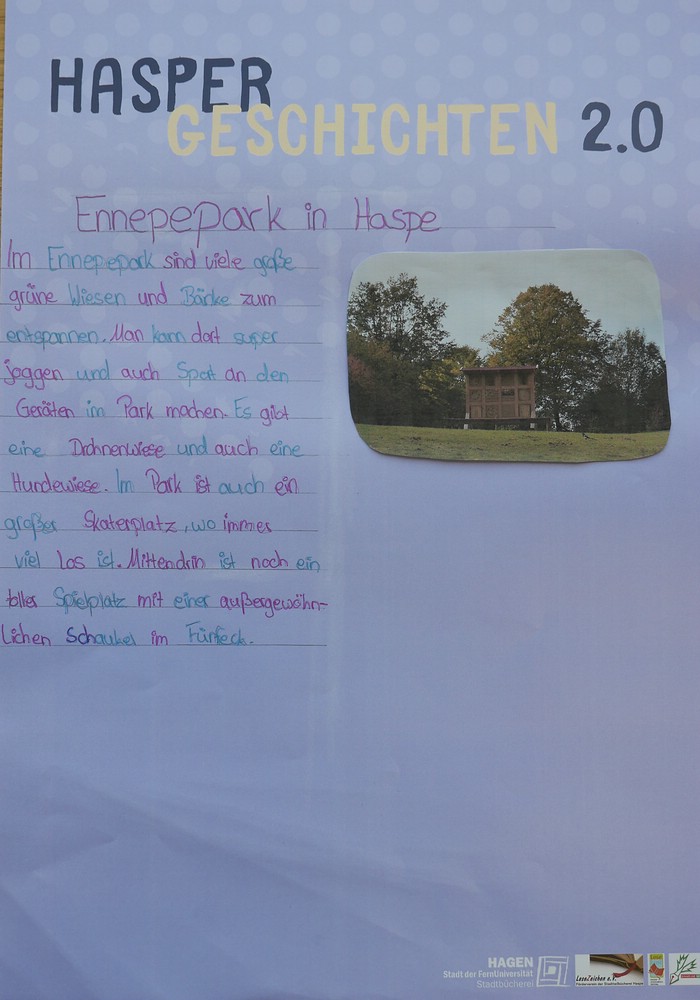 HASPER
GESCHICHTEN 2.0
Ennepepark in Haspe
Im Ennepepark sind viele große
grüne Wiesen und Bänke zum
entspannen. Man kann dort super
joggen und auch Spot an den
Geräten im Park machen. Es gibt
eine Drohnenwiese und auch eine
Hundewiese. Im Park ist auch ein
großer Skaterplatz, wo immer
viel los ist. Mittendrin ist noch ein
toller Spielplatz mit einer außergewöhn-
lichen Schaukel im Fünfeck.
HAGEN
Stadt der FernUniversität
Stadtbücherei
LeseZeichen e.V.
Förderverein der Stadtteilbücherei Haspe